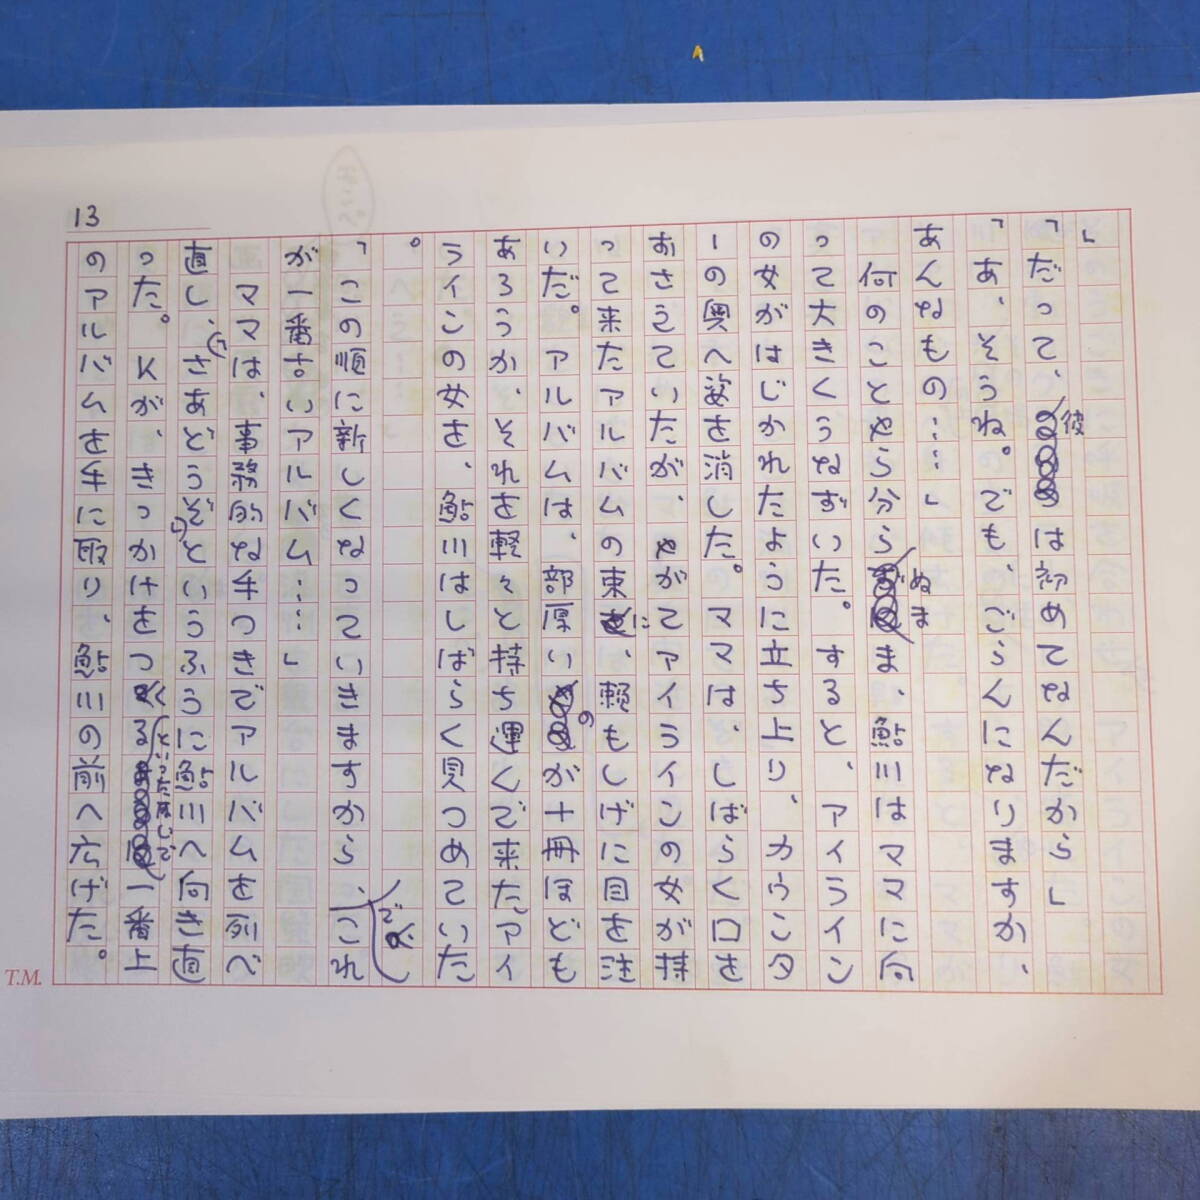 13
」
「だって、彼は初めてなんだから」
「あ、そうね。でも、ごらんになりますか、
あんなもの……」
何のことやら分らぬまま、鮎川はママに向
って大きくうなずいた。すると、アイライン
の女がはじかれたように立ち上り、カウンタ
ーの奥へ姿を消した。ママは、しばらく口を
おさえていたが、やがてアイラインの女が持
って来たアルバムの束に、頼もしげに目を注
いだ。アルバムは、部厚いのが十冊ほども
あろうか、それを軽々と持ち運んで来たアイ
ラインの女を、鮎川はしばらく見つめていた
。
「この順に新しくなっていきますから、これ
が一番古いアルバム……」
ママは、事務的な手つきでアルバムを列べ
直し、さあどうぞというふうに鮎川へ向き直
った。Kが、きっかけをつくるといった感じで一番上
のアルバムを手に取り、鮎川の前へ広げた。
T.M.